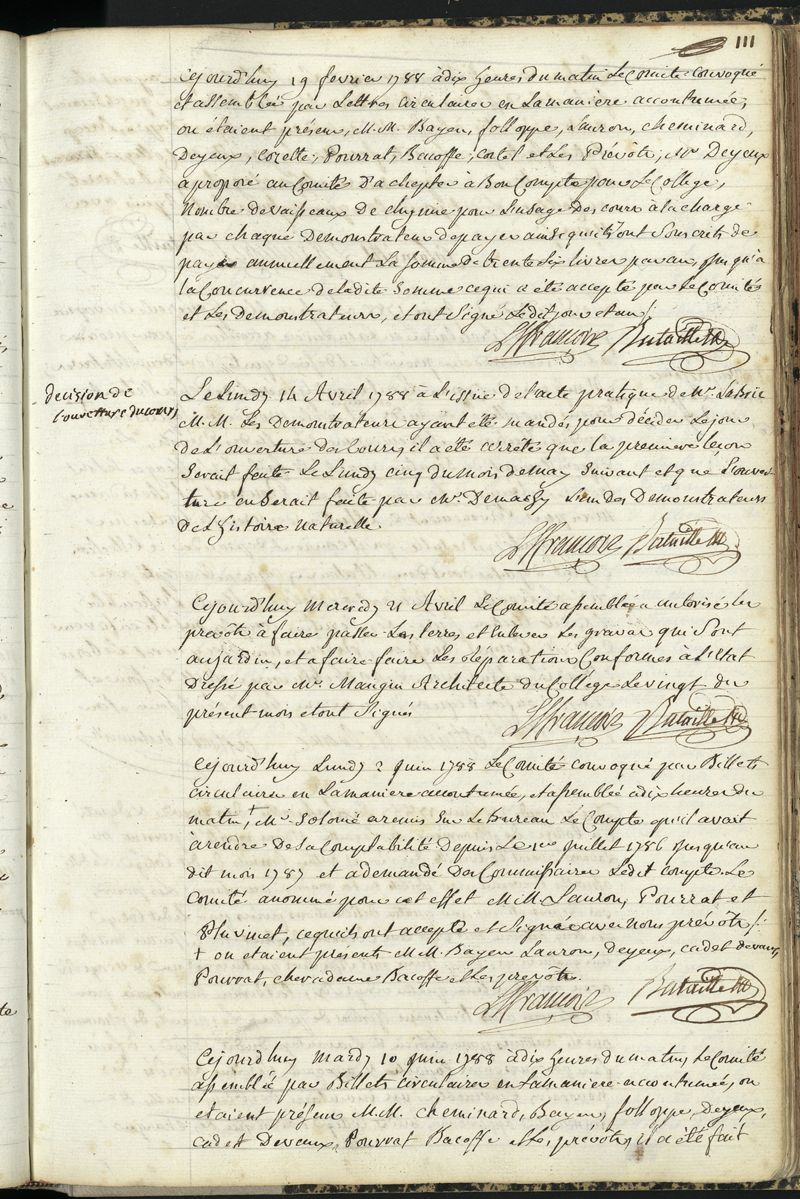 111
Cejourd'huy 19 fevrier 1788 à dix heures du matin Le Comité Convoqué
et assemblée par Lettres circulaires en La maniere accoutumée,
ou étaient présens, M.M. Bayen, folloppe, Lauron, Cheminard,
Deyeux, Cozette, Pourrat, Bacoffe, Cortel et Les Prévôts, Mr. Deyeux
a proposé au Comité d'achepter à Bon Compte pour Le College,
Nombre de vaisseaux de chymie pour L'usage Des cours à la charge
par chaque Demonstrateur de payer ainsi qu'ils ont Souscrits de
payer annuellement La Somme de trente Six livres par an, jusqu'à
la Concurrence de ladite Somme ce qui a été accepté par Le Comité
et Les Demonstrateurs, et ont Signé Ledit jour et an /.
L Francois Bataille
decision de
l'ouverture du cours
Le Lundy 14 Avril 1788 à L'issue de l'acte pratique de Mr.
M.M. Les Demonstrateurs ayant été mandés pour décider Le jour
de L'ouverture des Cours, il a été arrêté que la premiere leçon
Serait faite Le Lundy cinq du mois de may Suivant et que L'ouver
ture en Serait faite par Mr. Demachy L'un des Demonstrateurs
de L'histoire Naturelle
L Francois Bataille
Cejourd'huy Mercredy 21 Avril Le Comité assemblée a autorisé les
prevôts à faire passer Les terres et enlever Les gravas qui Sont
au jardin, et a faire faire Les Réparations Conformes à L'Etat
Dressé par Mr. Mangin Architecte du Collége Le vingt du
présent mois et ont Signés
L Francois Bataille
Cejourd'huy Lundy 2 Juin 1788 Le Comité convoqué par Billets
circulaires en La maniere accoutumée, et assemblée à dix heures du
matin, + Mr. Solomé a remis Sur Le Bureau Le Compte qu'il avait
à rendre de Sa Comptabilité Depuis Le 1er juillet 1786 jusqu'au
dit mois 1787 et a demandé Des Commissaires Audit Compte. Le
Comité a nommé pour cet effet M.M. Lauron, Pourrat et
Pluvinet, ce qu'ils ont accepté et Signé avec nous prévôts /.
+ ou etaient présents M.M. Bayen Lauron, deyeux, cadet devaux,
Pourrat, chevadame Bacoffe et Les prevôts
L Francois Bataille
Cejourd'huy Mardy 10 Juin 1788 à dix heures du matin, Le Comité
assemblée par Billets circulaires en La maniere accoutumée, ou
etaient présens M.M. Cheminard, Bayen, folloppe, Deyeux,
cadet Devaux, Pourrat Bacoffe et Les prévôts, il a été fait